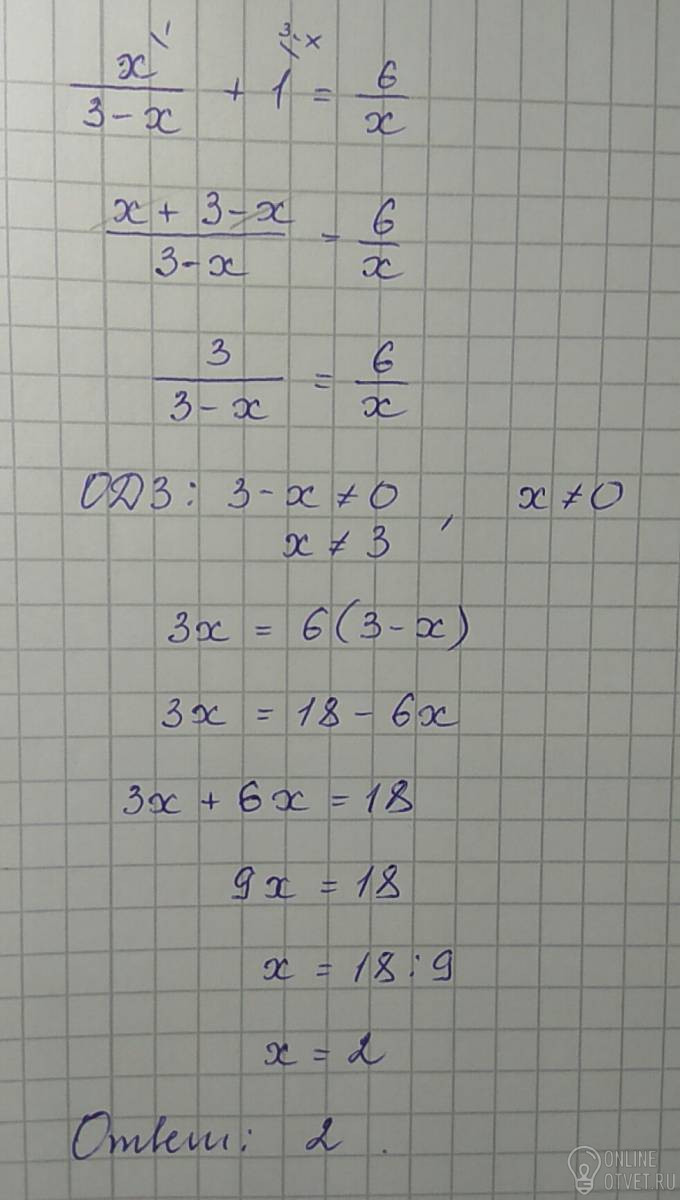 x\1 / 3 - x + 1\3-x = 6 / x
x + 3 - x / 3 - x = 6 / x
3 / 3 - x = 6 / x
ОДЗ: 3 - x ≠ 0 , x ≠ 0
x ≠ 3
3x = 6(3 - x)
3x = 18 - 6x
3x + 6x = 18
9x = 18
x = 18 : 9
x = 2
Ответ: 2.
ONLINE
OTVET.RU